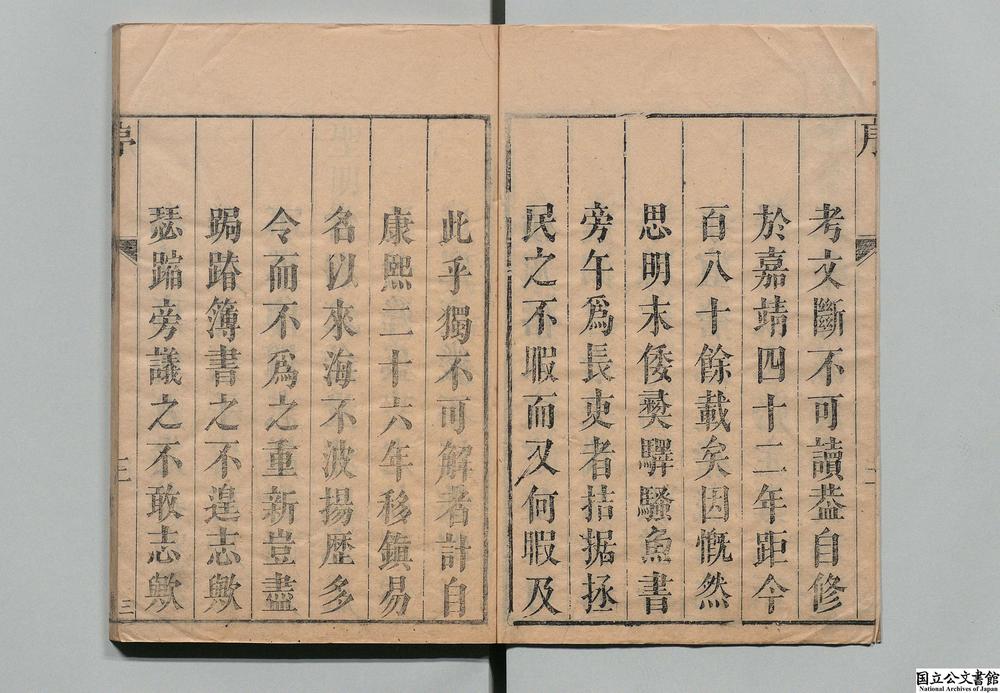 序
考文斷不可讀葢自修
於嘉靖四十二年距今
百八十餘載矣因慨然
思明末倭彛驛騷魚書
旁午爲長吏者拮据拯
民之不暇而又何暇及
此乎獨不可解者計自
康熙二十六年移鎭易
名以來海不波揚歷多
令而不爲之重新豈盡
跼蹐簿書之不遑志歟
瑟蹜旁議之不敢志歟
序
三
国立公文書館
National Archives of Japan